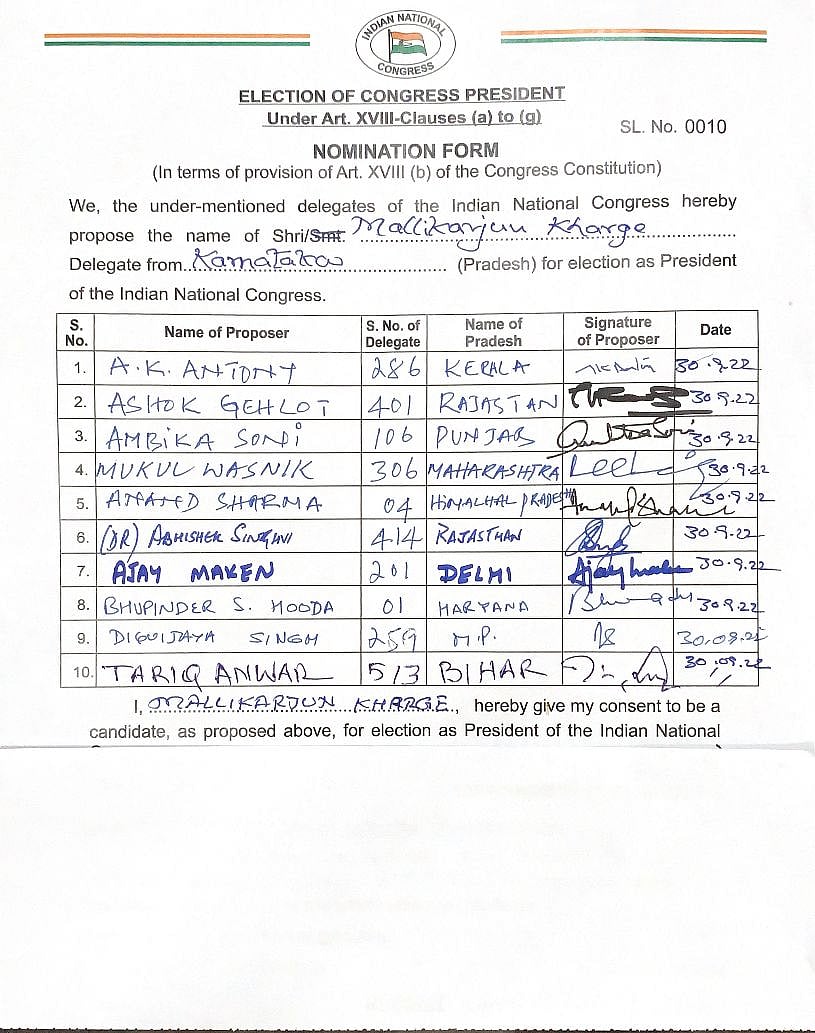 INDIAN NATIONAL
CONGRESS
ELECTION OF CONGRESS PRESIDENT
Under Art. XVIII-Clauses (a) to (g)
SL. No. 0010
NOMINATION FORM
(In terms of provision of Art. XVIII (b) of the Congress Constitution)
We, the under-mentioned delegates of the Indian National Congress hereby
propose the name of Shri/Smt. Mallikarjun Kharge
Delegate from Karnataka (Pradesh) for election as President
of the Indian National Congress.
S. No. Name of Proposer S. No. of Delegate Name of Pradesh Signature of Proposer Date
1. A.K. ANTONY 286 KERALA 30.9.22
2. ASHOK GEHLOT 401 RAJASTAN 30.9.22
3. AMBIKA SONI 106 PUNJAB 30.9.22
4. MUKUL WASNIK 306 MAHARASHTRA 30.9.22
5. ANAND SHARMA 04 HIMACHAL PRADESH 30.9.22
6. (DR) ABHISHEK SINGHVI 414 RAJASTHAN 30.9.22
7. AJAY MAKEN 201 DELHI Ajay Maken 30.9.22
8. BHUPINDER S. HOODA 01 HARYANA 30.9.22
9. DIGVIJAYA SINGH 259 M.P. 30.09.22
10. TARIQ ANWAR 513 BIHAR 30.09.22
I, MALLIKARJUN KHARGE, hereby give my consent to be a
candidate, as proposed above, for election as President of the Indian National